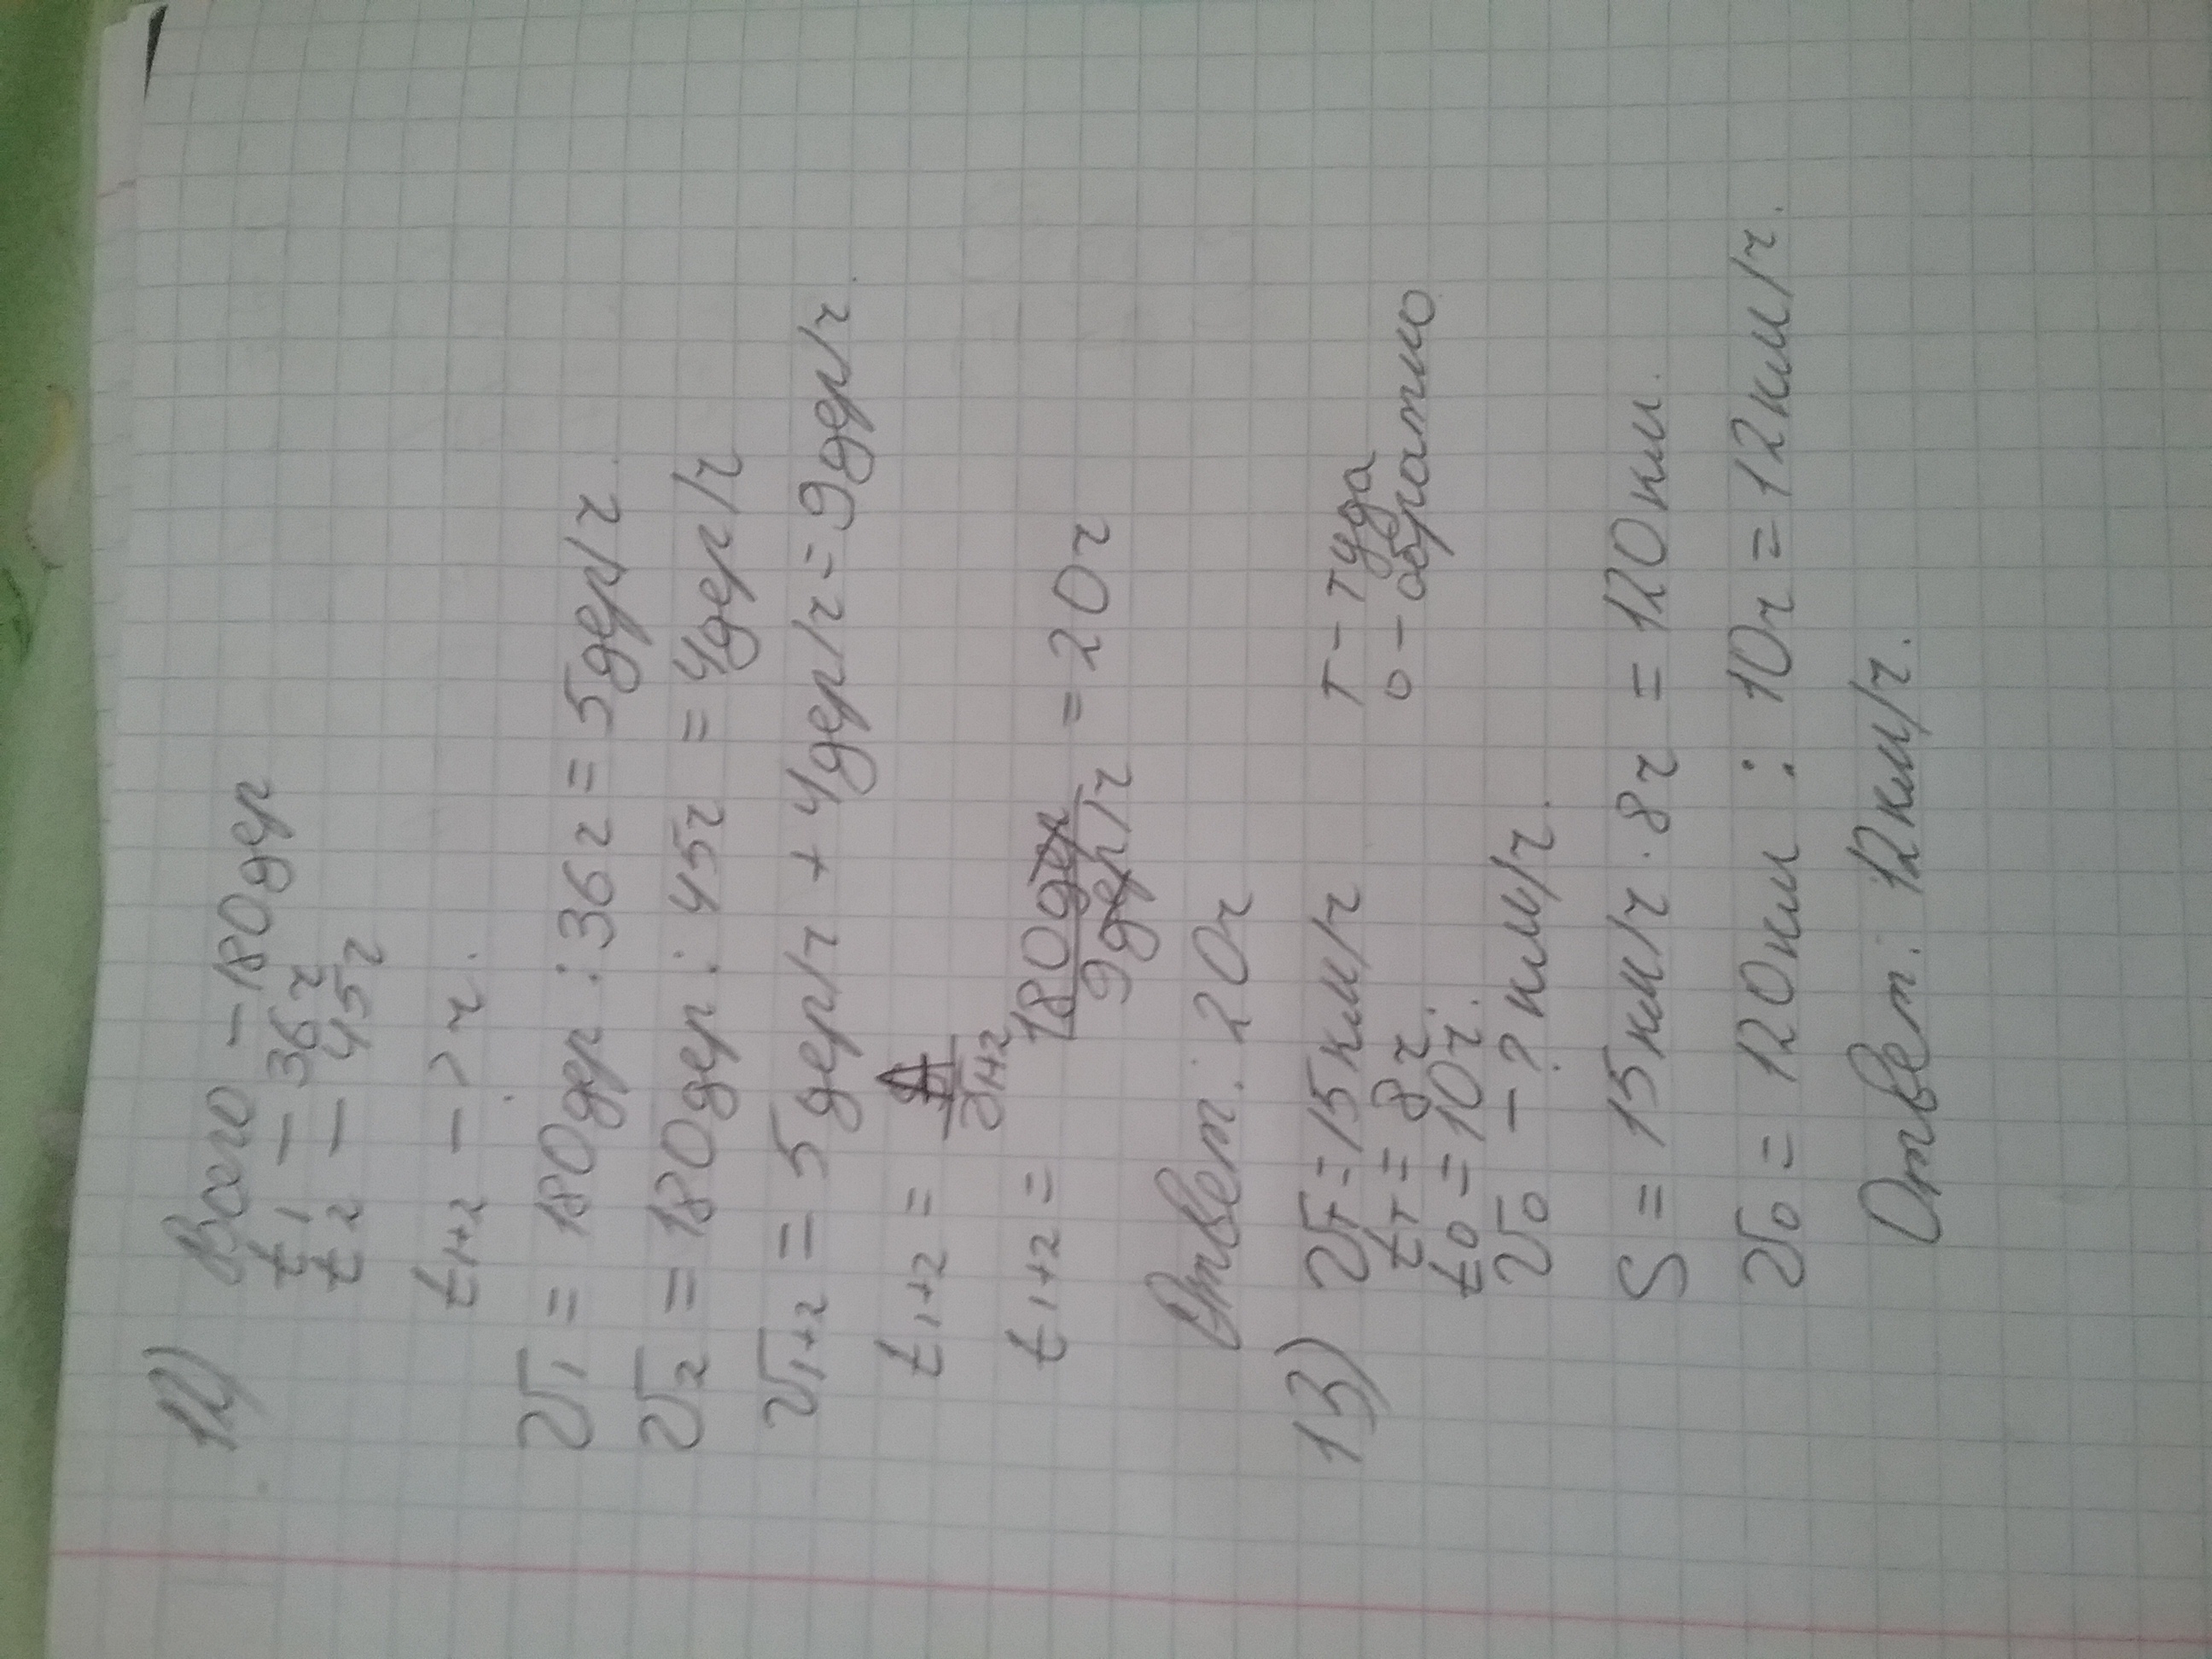 12) Всего – 180 дер
t₁ – 36 ч
t₂ – 45 ч
t₁₊₂ – ? ч.
V₁ = 180 дер : 36 ч = 5 дер/ч
V₂ = 180 дер : 45 ч = 4 дер/ч
V₁₊₂ = 5 дер/ч + 4 дер/ч = 9 дер/ч.
t₁₊₂ =
t₁₊₂ = 180 дер / 9 дер/ч = 20 ч
Ответ: 20 ч
13) Vт = 15 км/ч т – туда
tт = 8 ч. о – обратно
tо = 10 ч.
Vо – ? км/ч.
S = 15 км/ч · 8 ч = 120 км.
Vо = 120 км : 10 ч = 12 км/ч.
Ответ: 12 км/ч.